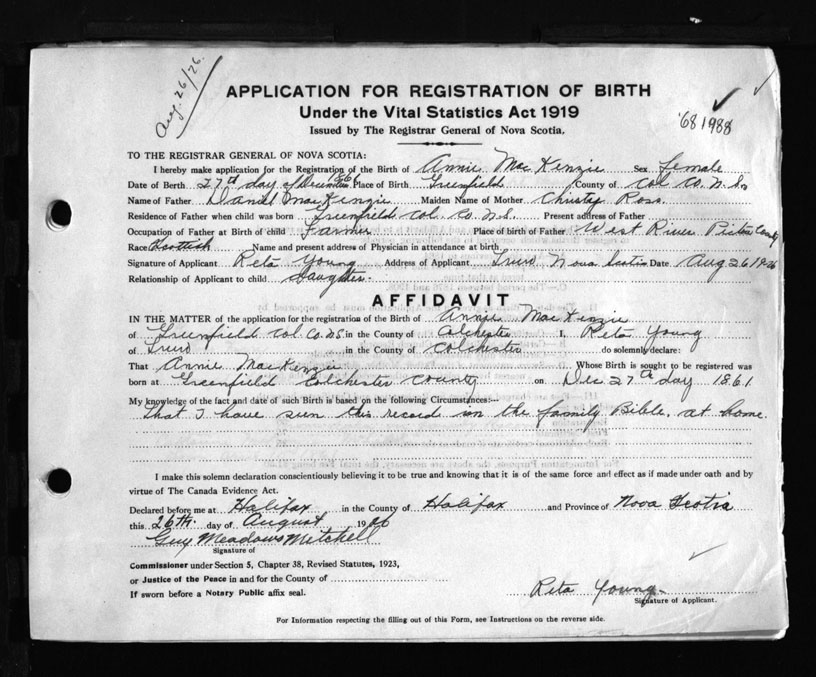 Aug. 26/26.
APPLICATION FOR REGISTRATION OF BIRTH
Under the Vital Statistics Act 1919
Issued by The Registrar General of Nova Scotia.
'68 1988
TO THE REGISTRAR GENERAL OF NOVA SCOTIA:
I hereby make application for the Registration of the Birth of Annie MacKenzie Sex Female
Date of Birth 27th day of December 1861 Place of Birth Greenfield County of Col Co. N.S.
Name of Father Daniel MacKenzie Maiden Name of Mother Christy Ross
Residence of Father when child was born Greenfield Col. Co. N.S. Present address of Father
Occupation of Father at Birth of child Farmer Place of birth of Father West River Pictou County
Race Scottish Name and present address of Physician in attendance at birth
Signature of Applicant Reta Young Address of Applicant Truro Nova Scotia Date Aug 26 1926
Relationship of Applicant to child daughter.
AFFIDAVIT
IN THE MATTER of the application for the registration of the Birth of Annie MacKenzie
of Greenfield Col. Co. N.S. in the County of Colchester I, Reta Young
of Truro in the County of Colchester do solemnly declare:
That Annie MacKenzie Whose Birth is sought to be registered was
born at Greenfield Colchester County on Dec 27th day 1861.
My knowledge of the fact and date of such Birth is based on the following Circumstances:—
that I have seen this record in the family Bible, at home.
I make this solemn declaration conscientiously believing it to be true and knowing that it is of the same force and effect as if made under oath and by
virtue of The Canada Evidence Act.
Declared before me at Halifax in the County of Halifax and Province of Nova Scotia
this 26th day of August 1926
Guy Meadows Mitchell
Signature of
Commissioner under Section 5, Chapter 38, Revised Statutes, 1923,
or Justice of the Peace in and for the County of
If sworn before a Notary Public affix seal.
Reta Young.
Signature of Applicant.
For Information respecting the filling out of this Form, see Instructions on the reverse side.